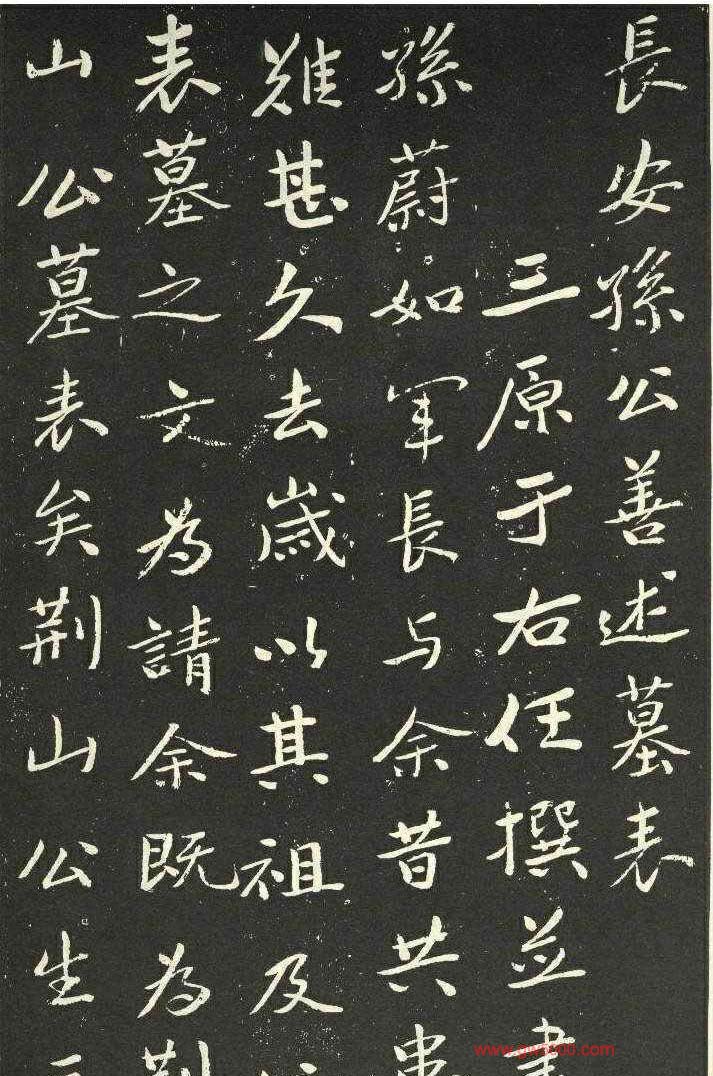 長安孫公善述墓表
三原于右任撰並書
孫蔚如軍長与余昔共患
難甚久去歲以其祖及
表墓之文為請余既為荆
山公墓表矣荆山公生三
www.gwx600.com